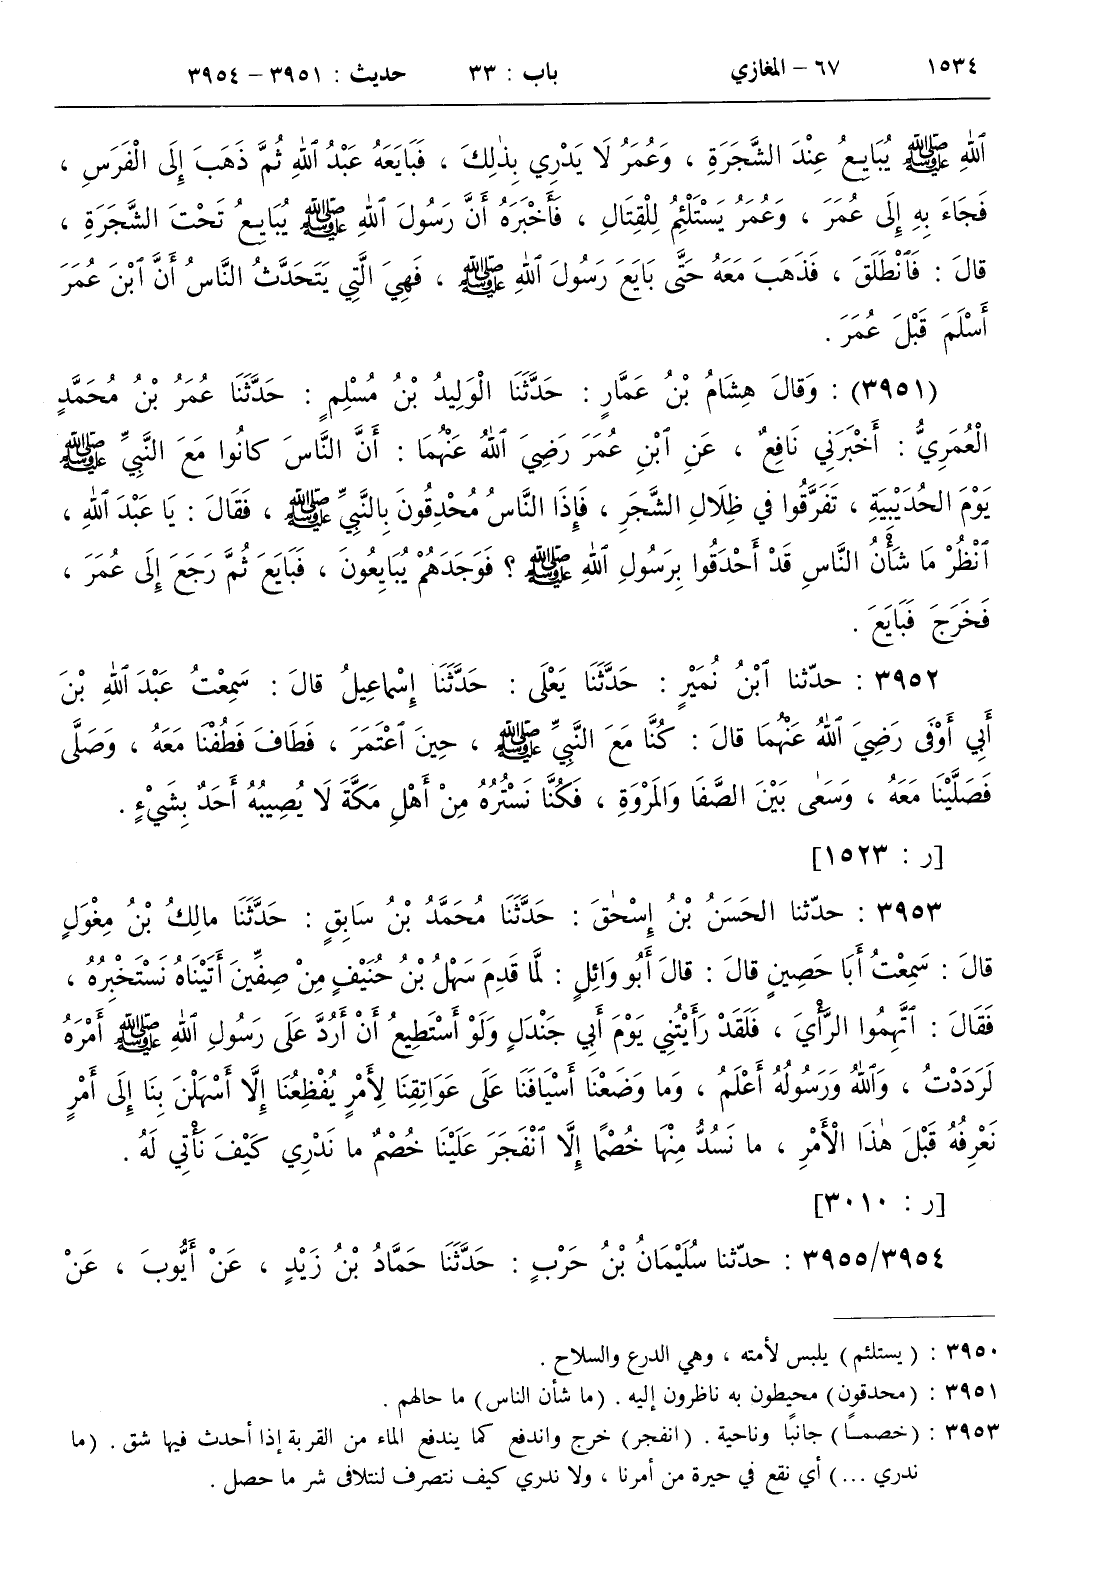 ١٥٣٤ ٦٧ – المغازي باب : ٣٣ حديث : ٣٩٥١ – ٣٩٥٤
ٱللهِ ﷺ يُبَايِعُ عِنْدَ الشَّجَرَةِ ، وَعُمَرُ لَا يَدْرِي بِذٰلِكَ ، فَبَايَعَهُ عَبْدُ ٱللهِ ثُمَّ ذَهَبَ إِلَى الْفَرَسِ ،
فَجَاءَ بِهِ إِلَى عُمَرَ ، وَعُمَرُ يَسْتَلْئِمُ لِلْقِتَالِ ، فَأَخْبَرَهُ أَنَّ رَسُولَ ٱللهِ ﷺ يُبَايِعُ تَحْتَ الشَّجَرَةِ ،
قالَ : فَٱنْطَلَقَ ، فَذَهَبَ مَعَهُ حَتَّى بَايَعَ رَسُولَ ٱللهِ ﷺ ، فَهِيَ الَّتِي يَتَحَدَّثُ النَّاسُ أَنَّ ٱبْنَ عُمَرَ
أَسْلَمَ قَبْلَ عُمَرَ .
(٣٩٥١) : وَقالَ هِشَامُ بْنُ عَمَّارٍ : حَدَّثَنَا الْوَلِيدُ بْنُ مُسْلِمٍ : حَدَّثَنَا عُمَرُ بْنُ مُحَمَّدٍ
الْعُمَرِيُّ : أَخْبَرَنِي نَافِعٌ ، عَنِ ٱبْنِ عُمَرَ رَضِيَ ٱللهُ عَنْهُمَا : أَنَّ النَّاسَ كانُوا مَعَ النَّبِيِّ ﷺ
يَوْمَ الحُدَيْبِيَةِ ، تَفَرَّقُوا في ظِلَالِ الشَّجَرِ ، فَإِذَا النَّاسُ مُحْدِقُونَ بِالنَّبِيِّ ﷺ ، فَقَالَ : يَا عَبْدَ ٱللهِ ،
ٱنْظُرْ مَا شَأْنُ النَّاسِ قَدْ أَحْدَقُوا بِرَسُولِ ٱللهِ ﷺ ؟ فَوَجَدَهُمْ يُبَايِعُونَ ، فَبَايَعَ ثُمَّ رَجَعَ إِلَى عُمَرَ ،
فَخَرَجَ فَبَايَعَ .
٣٩٥٢ : حدّثنا ٱبْنُ نُمَيْرٍ : حَدَّثَنَا يَعْلَى : حَدَّثَنَا إِسْماعِيلُ قالَ : سَمِعْتُ عَبْدَ ٱللهِ بْنَ
أَبِي أَوْفَى رَضِيَ ٱللهُ عَنْهُمَا قالَ : كُنَّا مَعَ النَّبِيِّ ﷺ ، حِينَ ٱعْتَمَرَ ، فَطَافَ فَطُفْنَا مَعَهُ ، وَصَلَّى
فَصَلَّيْنَا مَعَهُ ، وَسَعٰى بَيْنَ الصَّفَا وَالمَرْوَةِ ، فَكُنَّا نَسْتُرُهُ مِنْ أَهْلِ مَكَّةَ لَا يُصِيبُهُ أَحَدٌ بِشَيْءٍ .
[ر : ١٥٢٣]
٣٩٥٣ : حدّثنا الحَسَنُ بْنُ إِسْحٰقَ : حَدَّثَنَا مُحَمَّدُ بْنُ سَابِقٍ : حَدَّثَنَا مالِكُ بْنُ مِغْوَلٍ
قالَ : سَمِعْتُ أَبَا حَصِينٍ قالَ : قالَ أَبُو وَائِلٍ : لَمَّا قَدِمَ سَهْلُ بْنُ حُنَيْفٍ مِنْ صِفِّينَ أَتَيْنَاهُ نَسْتَخْبِرُهُ ،
فَقَالَ : ٱتَّهِمُوا الرَّأْيَ ، فَلَقَدْ رَأَيْتُنِي يَوْمَ أَبِي جَنْدَلٍ وَلَوْ أَسْتَطِيعُ أَنْ أَرُدَّ عَلَى رَسُولِ ٱللهِ ﷺ أَمْرَهُ
لَرَدَدْتُ ، وَٱللهُ وَرَسُولُهُ أَعْلَمُ ، وَما وَضَعْنَا أَسْيَافَنَا عَلَى عَوَاتِقِنَا لِأَمْرٍ يُفْظِعُنَا إِلَّا أَسْهَلْنَ بِنَا إِلَى أَمْرٍ
نَعْرِفُهُ قَبْلَ هٰذَا الْأَمْرِ ، ما نَسُدُّ مِنْهَا خُصْمًا إِلَّا ٱنْفَجَرَ عَلَيْنَا خُصْمٌ ما نَدْرِي كَيْفَ نَأْتِي لَهُ .
[ر : ٣٠١٠]
٣٩٥٥/٣٩٥٤ : حدّثنا سُلَيْمَانُ بْنُ حَرْبٍ : حَدَّثَنَا حَمَّادُ بْنُ زَيْدٍ ، عَنْ أَيُّوبَ ، عَنْ
٣٩٥٠ : (يستلئم) يلبس لأمته ، وهي الدرع والسلاح .
٣٩٥١ : (محدقون) محيطون به ناظرون إليه . (ما شأن الناس) ما حالهم .
٣٩٥٣ : (خصمـاً) جانبًا وناحية . (انفجر) خرج واندفع كما يندفع الماء من القربة إذا أحدث فيها شق . (ما
ندري ...) أي نقع في حيرة من أمرنا ، ولا ندري كيف نتصرف لنتلافى شر ما حصل .